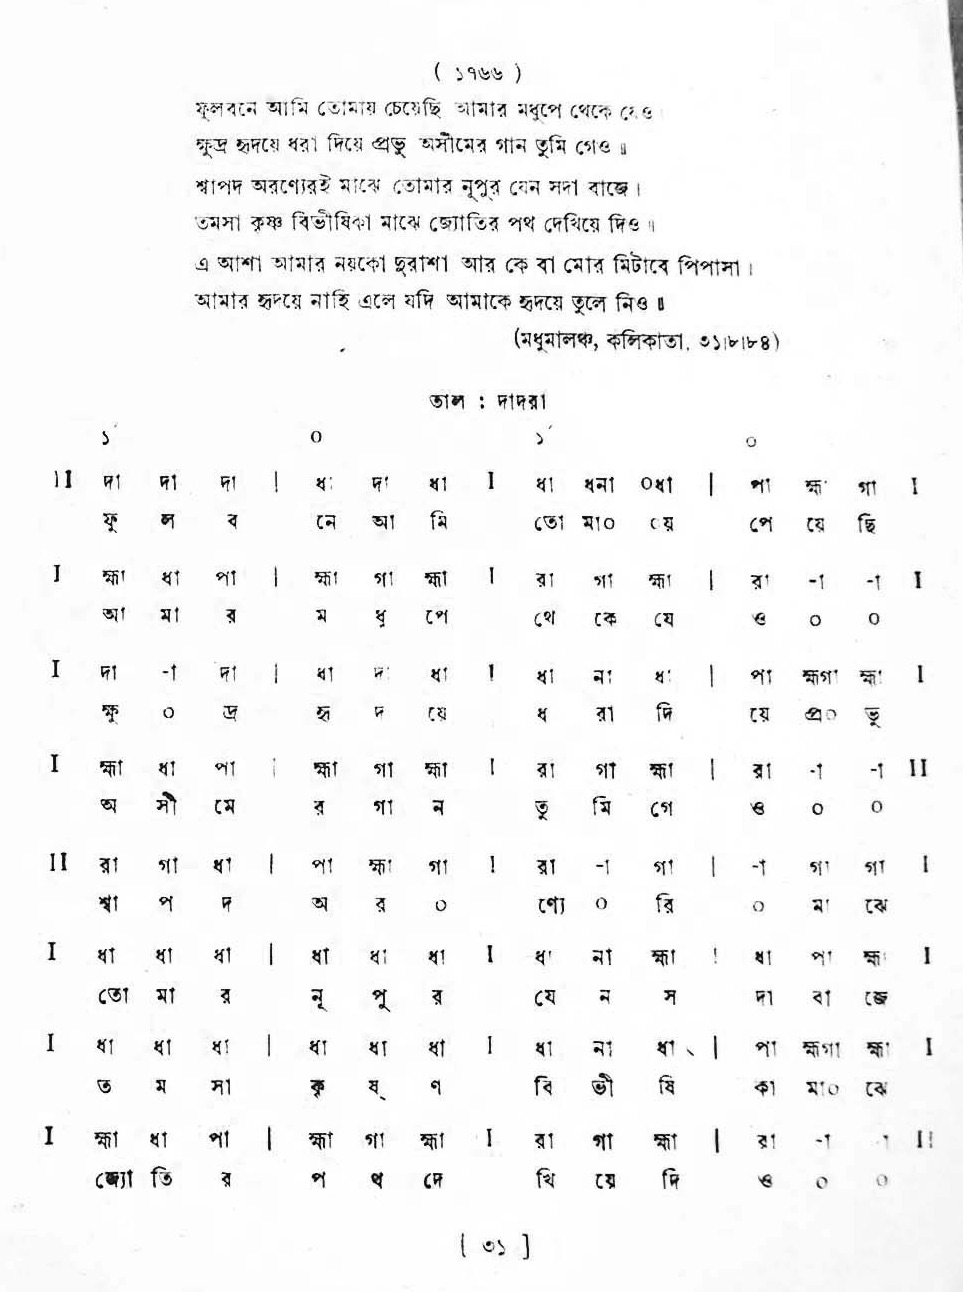 ( ১৭৬৬ )
ফুলবনে আমি তোমায় চেয়েছি আমার মধুপে থেকে যেও
ক্ষুদ্র হৃদয়ে ধরা দিয়ে প্রভু অসীমের গান তুমি গেও ॥
শ্বাপদ অরণ্যেরই মাঝে তোমার নূপুর যেন সদা বাজে ।
তমসা কৃষ্ণ বিভীষিকা মাঝে জ্যোতির পথ দেখিয়ে দিও ॥
এ আশা আমার নয়কো দুরাশা আর কে বা মোর মিটাবে পিপাসা ।
আমার হৃদয়ে নাহি এলে যদি আমাকে হৃদয়ে তুলে নিও ॥
(মধুমালঞ্চ, কলিকাতা, ৩১।৮।৮৪)
তাল : দাদরা
১´ ০ ১´ ০
II দা দা দা | ধা দা ধা I ধা ধনা ০ধা | পা হ্মা গা I
ফু ল ব নে আ মি তো মা০ য়ে পে য়ে ছি
I হ্মা ধা পা | হ্মা গা হ্মা I রা গা হ্মা | রা -া -া I
আ মা র ম ধু পে থে কে যে ও ০ ০
I দা -া দা | ধা দা ধা I ধা না ধা | পা হ্মগা হ্মা I
ক্ষু ০ দ্র হৃ দ য়ে ধ রা দি য়ে প্র০ ভু
I হ্মা ধা পা | হ্মা গা হ্মা I রা গা হ্মা | রা -া -া II
অ সী মে র গা ন তু মি গে ও ০ ০
II রা গা ধা | পা হ্মা গা I রা -া গা | -া গা গা I
শ্বা প দ অ র ০ ণ্যে ০ রি ০ মা ঝে
I ধা ধা ধা | ধা ধা ধা I ধা না হ্মা | ধা পা হ্মা I
তো মা র নূ পু র যে ন স দা বা জে
I ধা ধা ধা | ধা ধা ধা I ধা না ধা | পা হ্মগা হ্মা I
ত ম সা কৃ ষ্ ণ বি ভী ষি কা মা০ ঝে
I হ্মা ধা পা | হ্মা গা হ্মা I রা গা হ্মা | রা -া -া II
জ্যো তি র প থ দে খি য়ে দি ও ০ ০
[ ৩১ ]